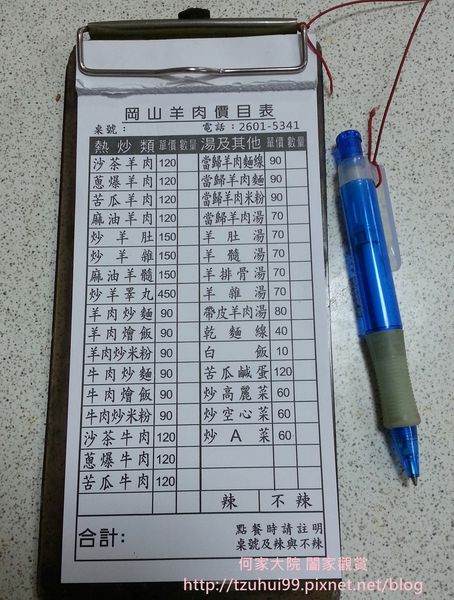 岡山羊肉價目表
桌號： 電話：2601-5341
熱炒類 單價 數量 湯及其他 單價 數量
沙茶羊肉 120 當歸羊肉麵線 90
蔥爆羊肉 120 當歸羊肉麵 90
苦瓜羊肉 120 當歸羊肉米粉 90
麻油羊肉 120 當歸羊肉湯 70
炒羊肚 150 羊肚湯 70
炒羊雜 150 羊髓湯 70
麻油羊髓 150 羊排骨湯 70
炒羊睪丸 450 羊雜湯 70
羊肉炒麵 90 帶皮羊肉湯 80
羊肉燴飯 90 乾麵線 40
羊肉炒米粉 90 白飯 10
牛肉炒麵 90 苦瓜鹹蛋 120
牛肉燴飯 90 炒高麗菜 60
牛肉炒米粉 90 炒空心菜 60
沙茶牛肉 120 炒A菜 60
蔥爆牛肉 120
苦瓜牛肉 120
辣 不辣
合計: 點餐時請註明
桌號及辣與不辣
何家大院 闔家觀賞
http://tzuhui99.pixnet.net/blog